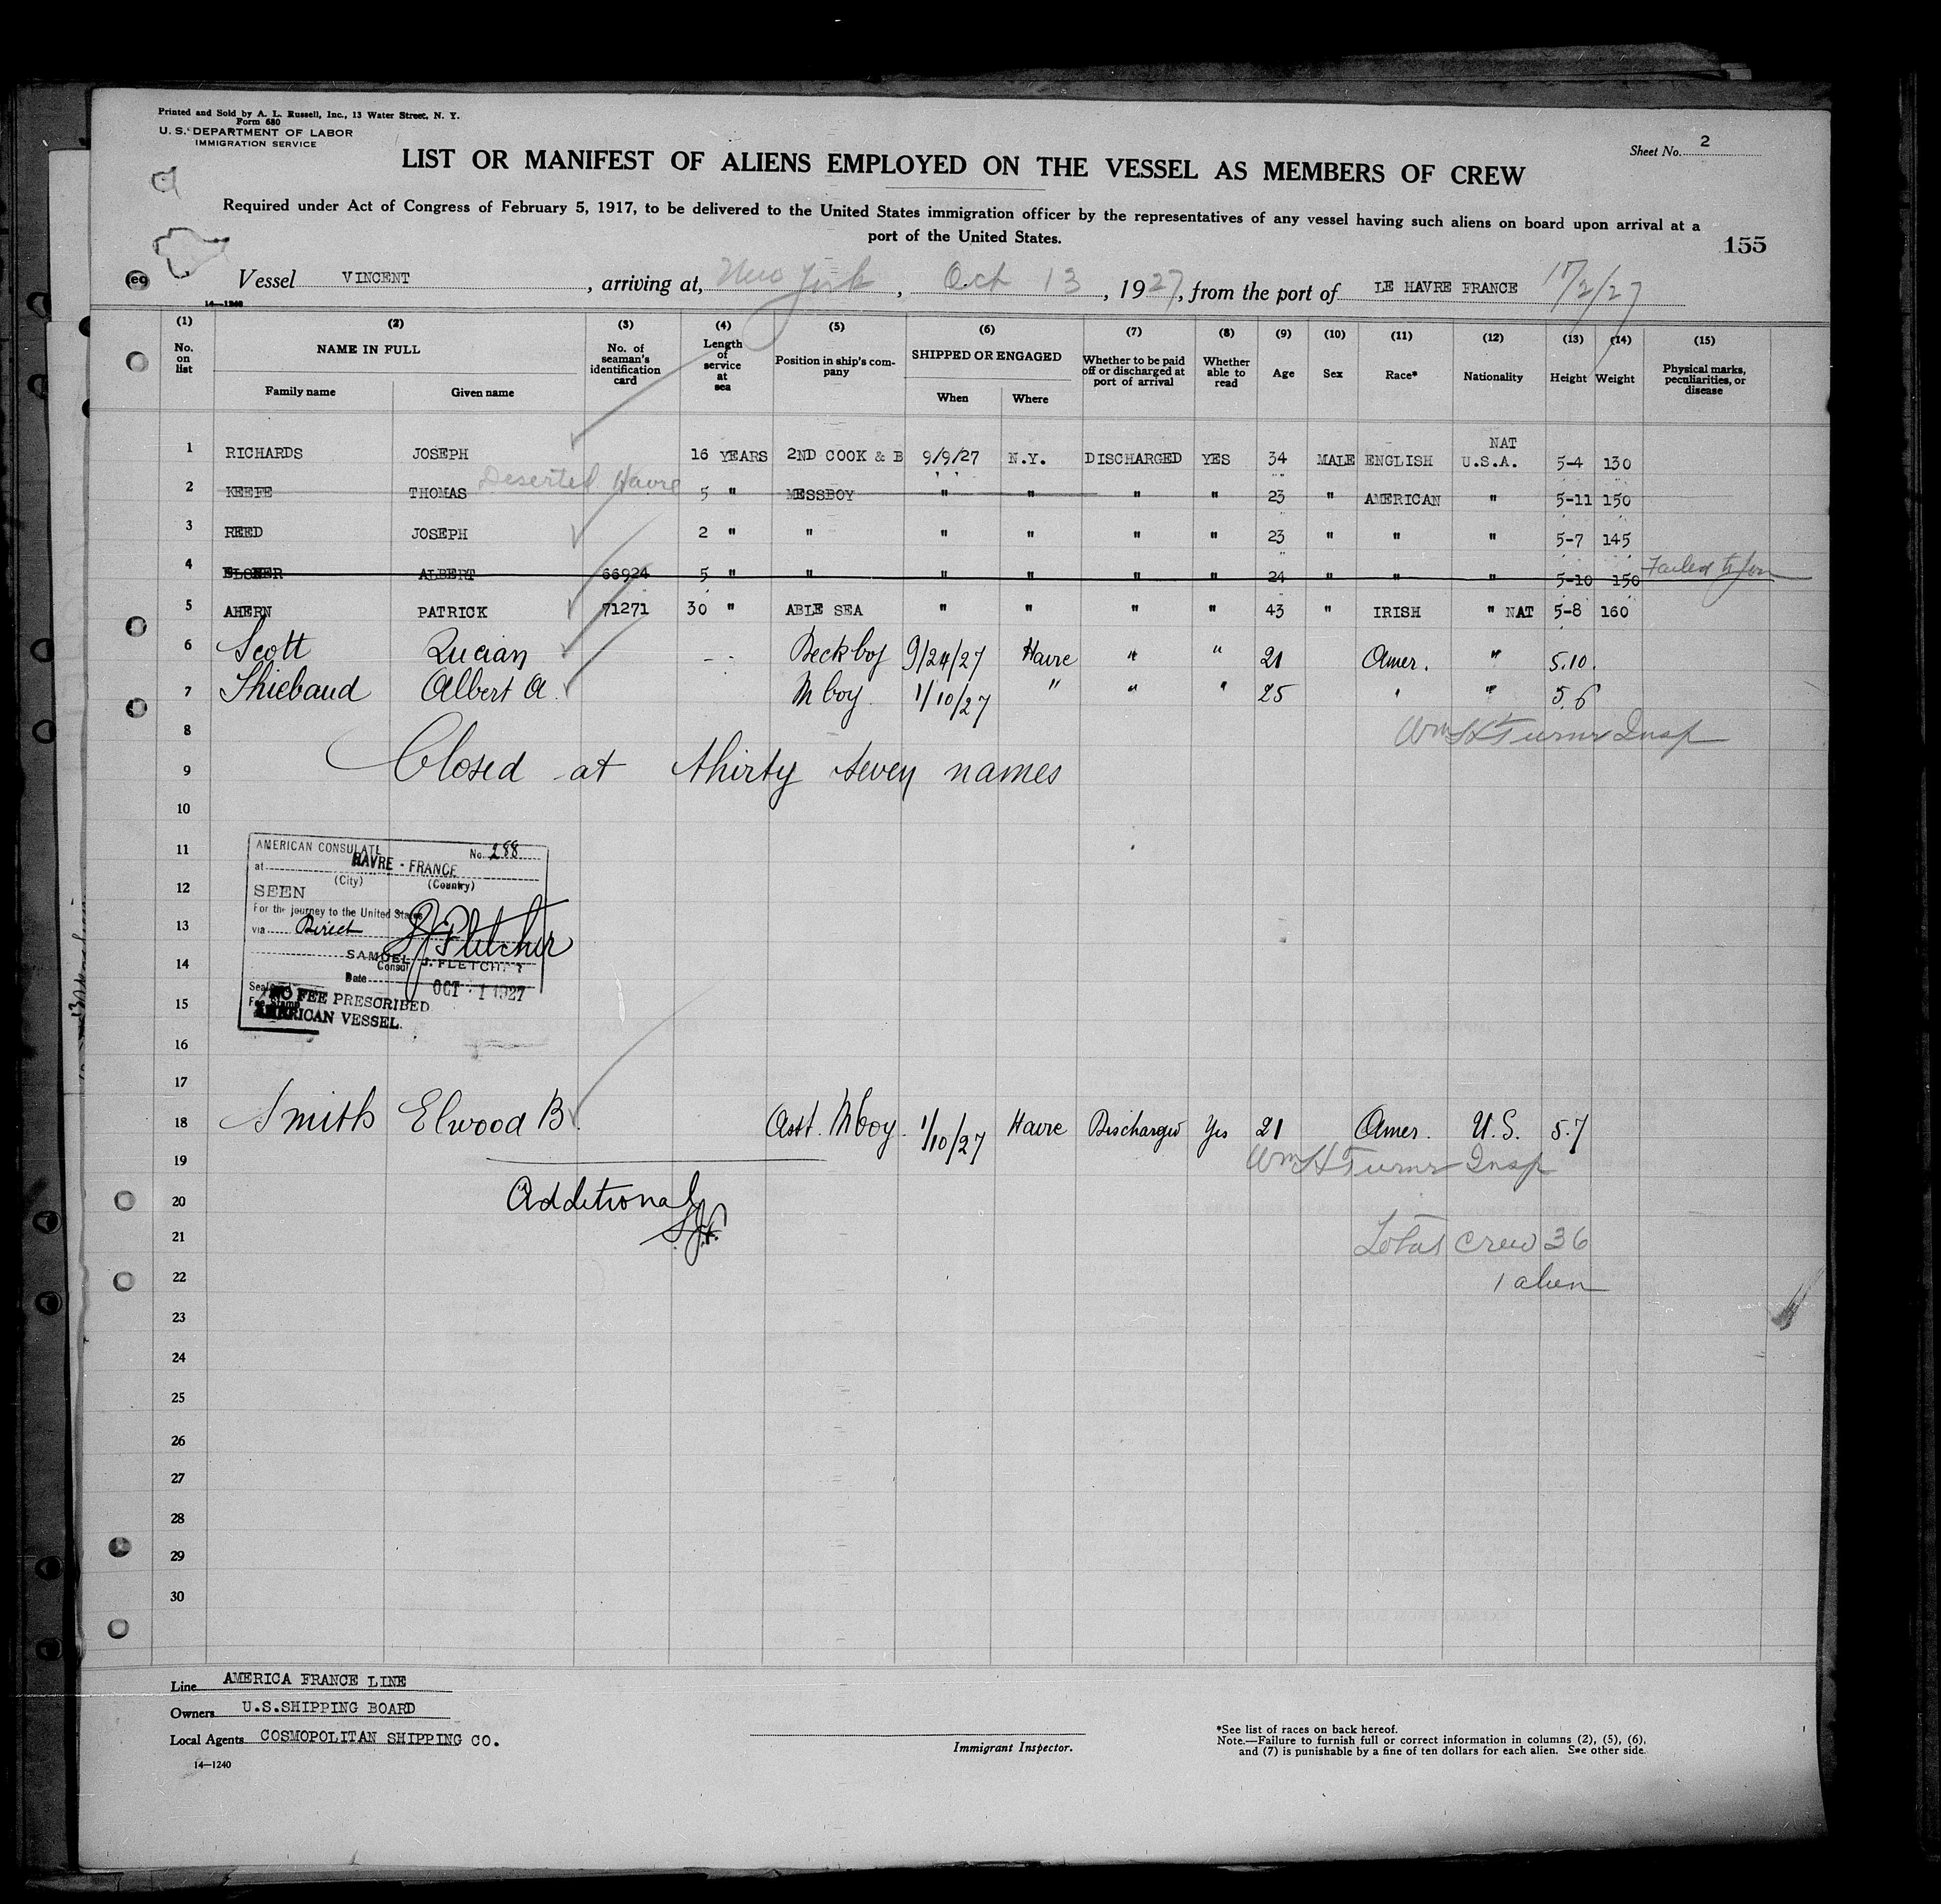 Printed and Sold by A. L. Russell, Inc., 13 Water Street, N. Y.
Form 680
U. S. DEPARTMENT OF LABOR
IMMIGRATION SERVICE
Sheet No. 2
LIST OR MANIFEST OF ALIENS EMPLOYED ON THE VESSEL AS MEMBERS OF CREW
Required under Act of Congress of February 5, 1917, to be delivered to the United States immigration officer by the representatives of any vessel having such aliens on board upon arrival at a
port of the United States.
155
Vessel VINCENT, arriving at, New York, Oct 13, 1927, from the port of LE HAVRE FRANCE
14—1240
(1) (2) (3) (4) (5) (6) (7) (8) (9) (10) (11) (12) (13) (14) (15)
No. on list NAME IN FULL No. of seaman's identification card Length of service at sea Position in ship's company SHIPPED OR ENGAGED Whether to be paid off or discharged at port of arrival Whether able to read Age Sex Race* Nationality Height Weight Physical marks, peculiarities, or disease
Family name Given name When Where
1 RICHARDS JOSEPH 16 YEARS 2ND COOK & B 9/9/27 N.Y. DISCHARGED YES 34 MALE ENGLISH NAT U.S.A. 5-4 130
2 KEEFE THOMAS Deserted Havre 5 " MESSBOY " " " " 23 " AMERICAN " 5-11 150
3 REED JOSEPH 2 " " " " " " 23 " " " 5-7 145
4 ELSNER ALBERT 66924 5 " " " " " " 24 " " " 5-10 150 Failed to join
5 AHERN PATRICK 71271 30 " ABLE SEA " " " " 43 " IRISH " NAT 5-8 160
6 Scott Lucian Deck boy 9/24/27 Havre " " 21 Amer. " 5.10.
7 Thiebaud Albert A. M boy 1/10/27 " " " 25 " " 5.6
8 Wm H Turner Insp
9 Closed at thirty seven names
10
11
AMERICAN CONSULATE No. 288
at HAVRE - FRANCE
(City) (Country)
12
SEEN
For the journey to the United States
13
via Direct SJFletcher
SAMUEL J. FLETCHER
14
Consul
Date OCT - 1 1927
Seal
15
NO FEE PRESCRIBED
Fee Stamp
AMERICAN VESSEL.
16
17
18 Smith Elwood B. Asst. M boy. 1/10/27 Havre Discharged Yes 21 Amer. U.S. 5.7
19 Wm H Turner Insp
20 Additional
21 S.J.F. Total Crew 36
22 1 alien
23
24
25
26
27
28
29
30
Line AMERICA FRANCE LINE
Owners U.S.SHIPPING BOARD
Local Agents COSMOPOLITAN SHIPPING CO.
14—1240
Immigrant Inspector.
*See list of races on back hereof.
Note.—Failure to furnish full or correct information in columns (2), (5), (6),
and (7) is punishable by a fine of ten dollars for each alien. See other side.